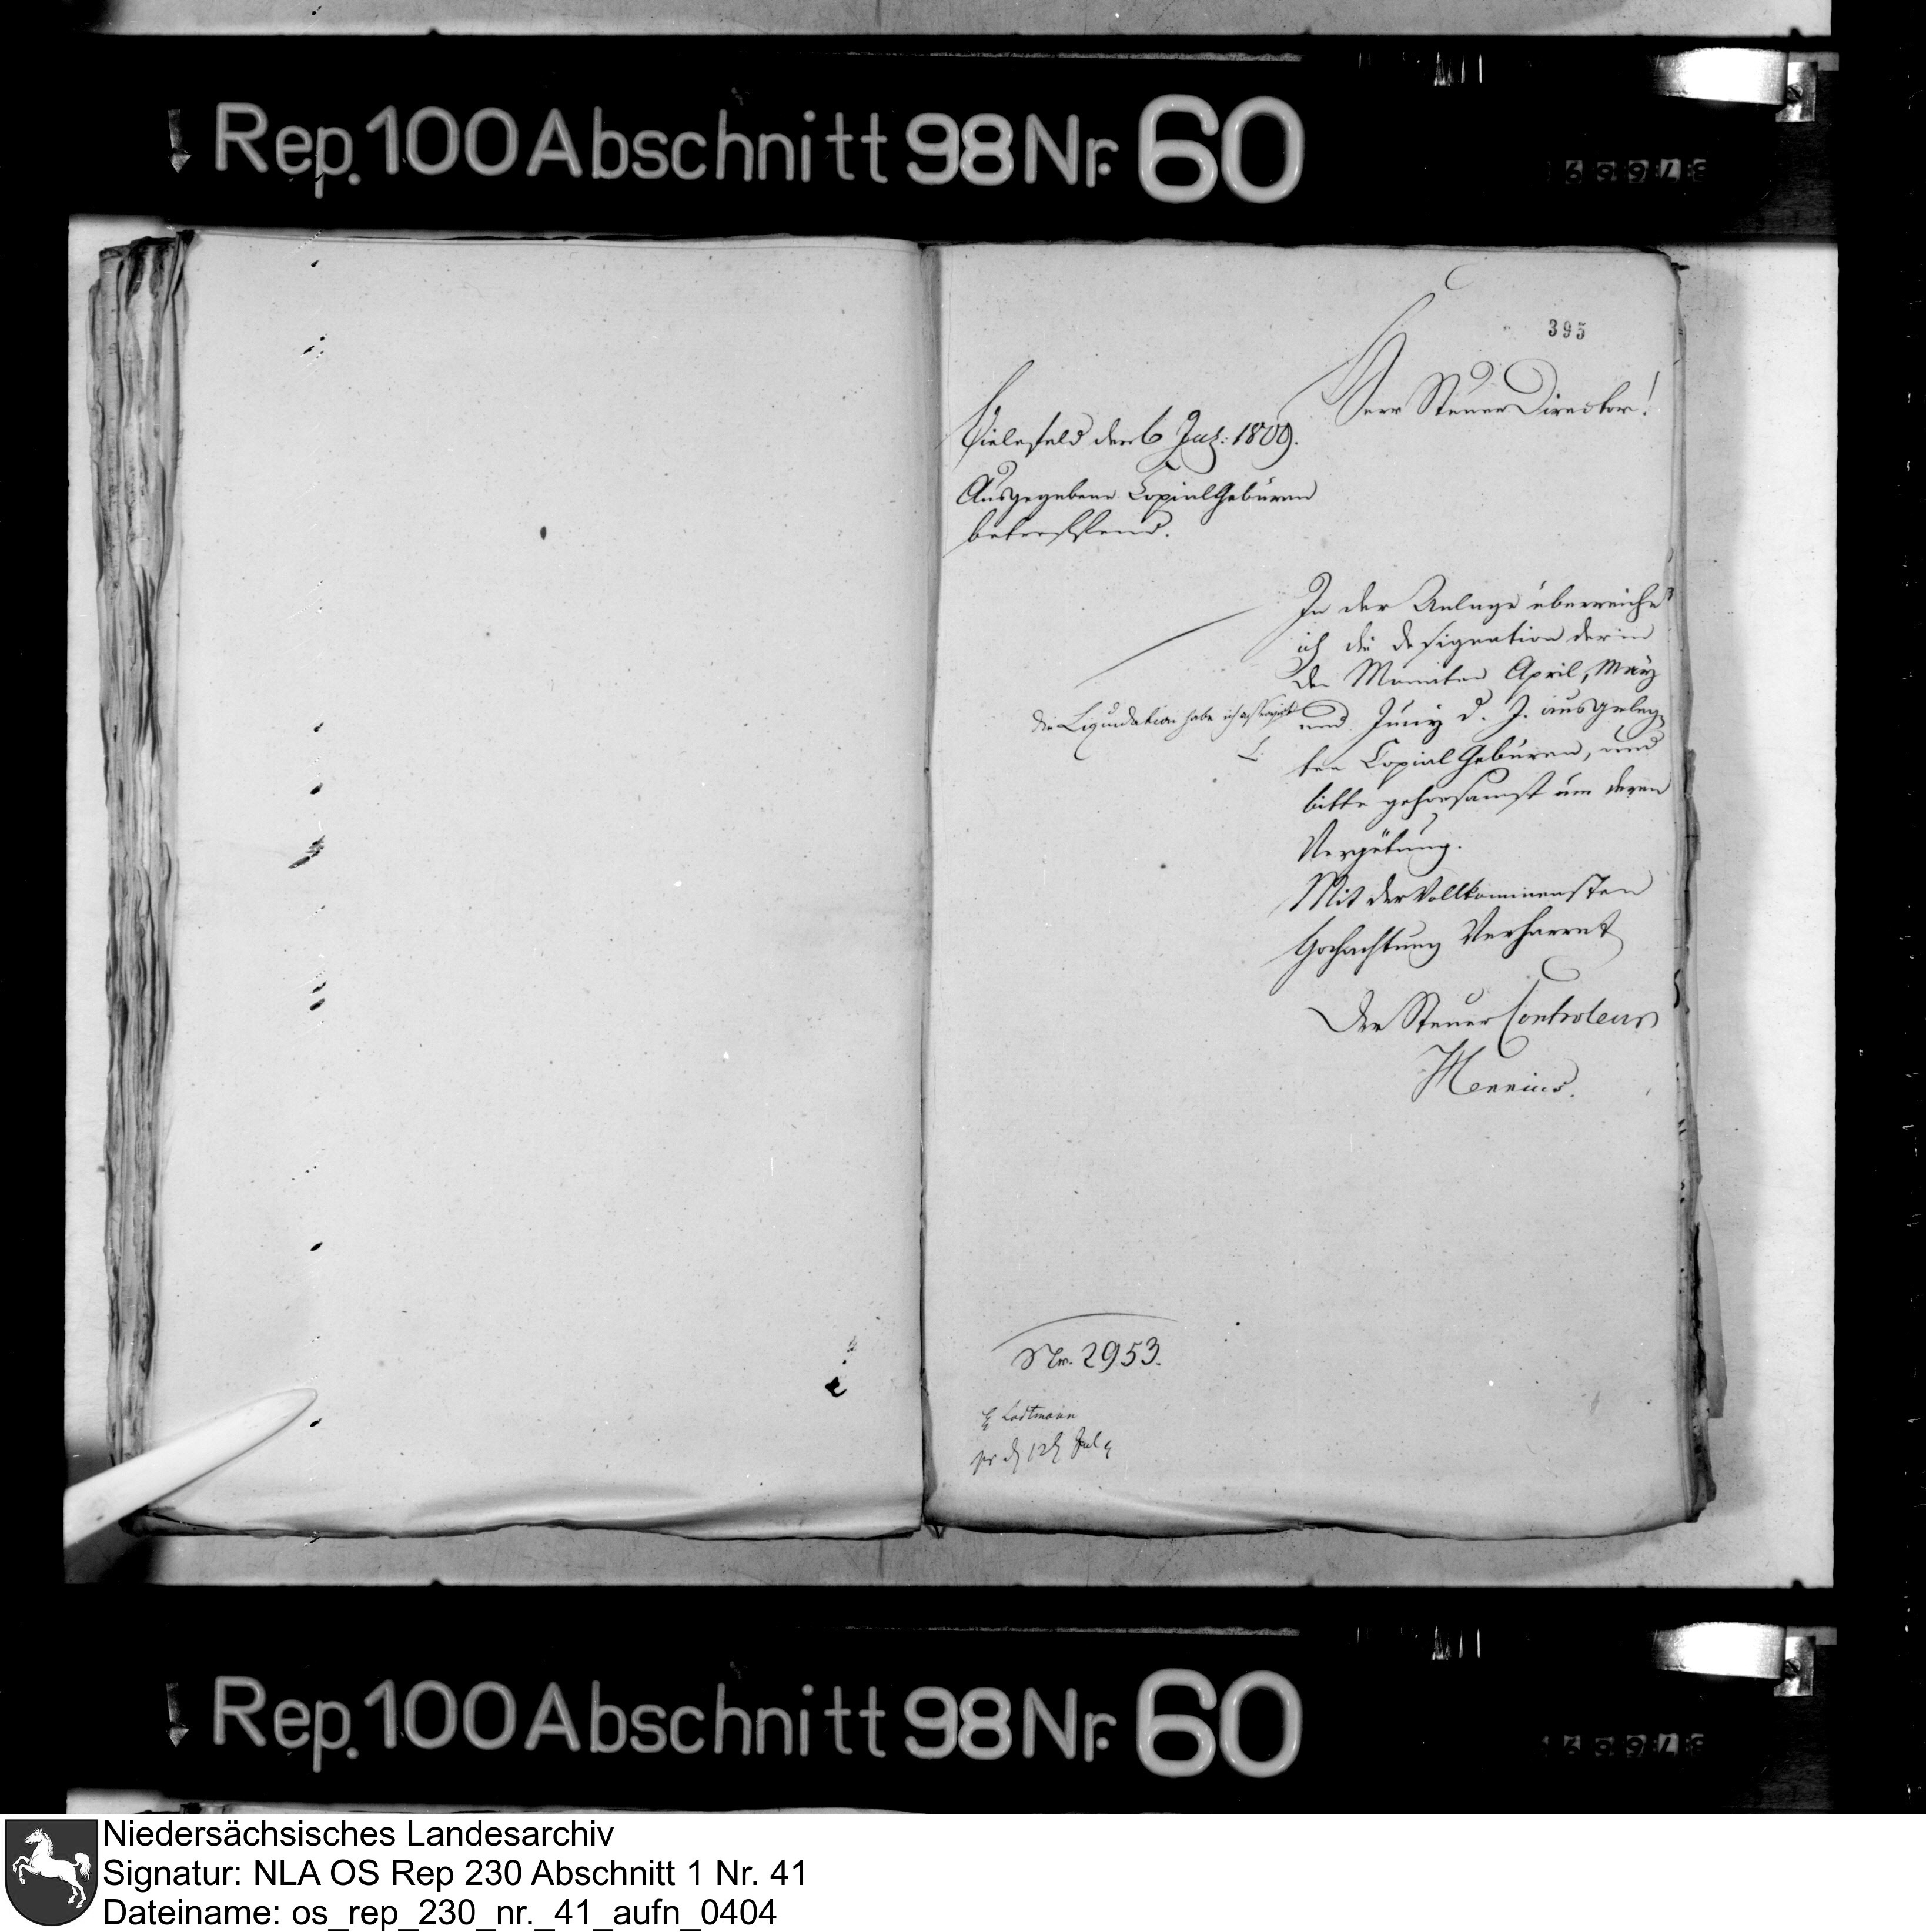 Rep. 100 Abschnitt 98 Nr. 60
395
Herr Steuer Director!
Bielefeld den 6 Jul: 1809.
Ausgegebene Copial Gebüren
betreffend.
In der Anlage überreiche
ich die Designation der in
den Monaten April, May
und Juny d. J. ausgeleg-
ten Copial Gebüren, und
bitte gehorsamst um deren
Vergütung.
Mit der Vollkommensten
Hochachtung Verharret
Der Steuer Controleur
Mennius.
die Liquidation habe ich
L.
Nr. 2953.
Lodtmann
pr d 12 July
Rep. 100 Abschnitt 98 Nr. 60
Niedersächsisches Landesarchiv
Signatur: NLA OS Rep 230 Abschnitt 1 Nr. 41
Dateiname: os_rep_230_nr._41_aufn_0404